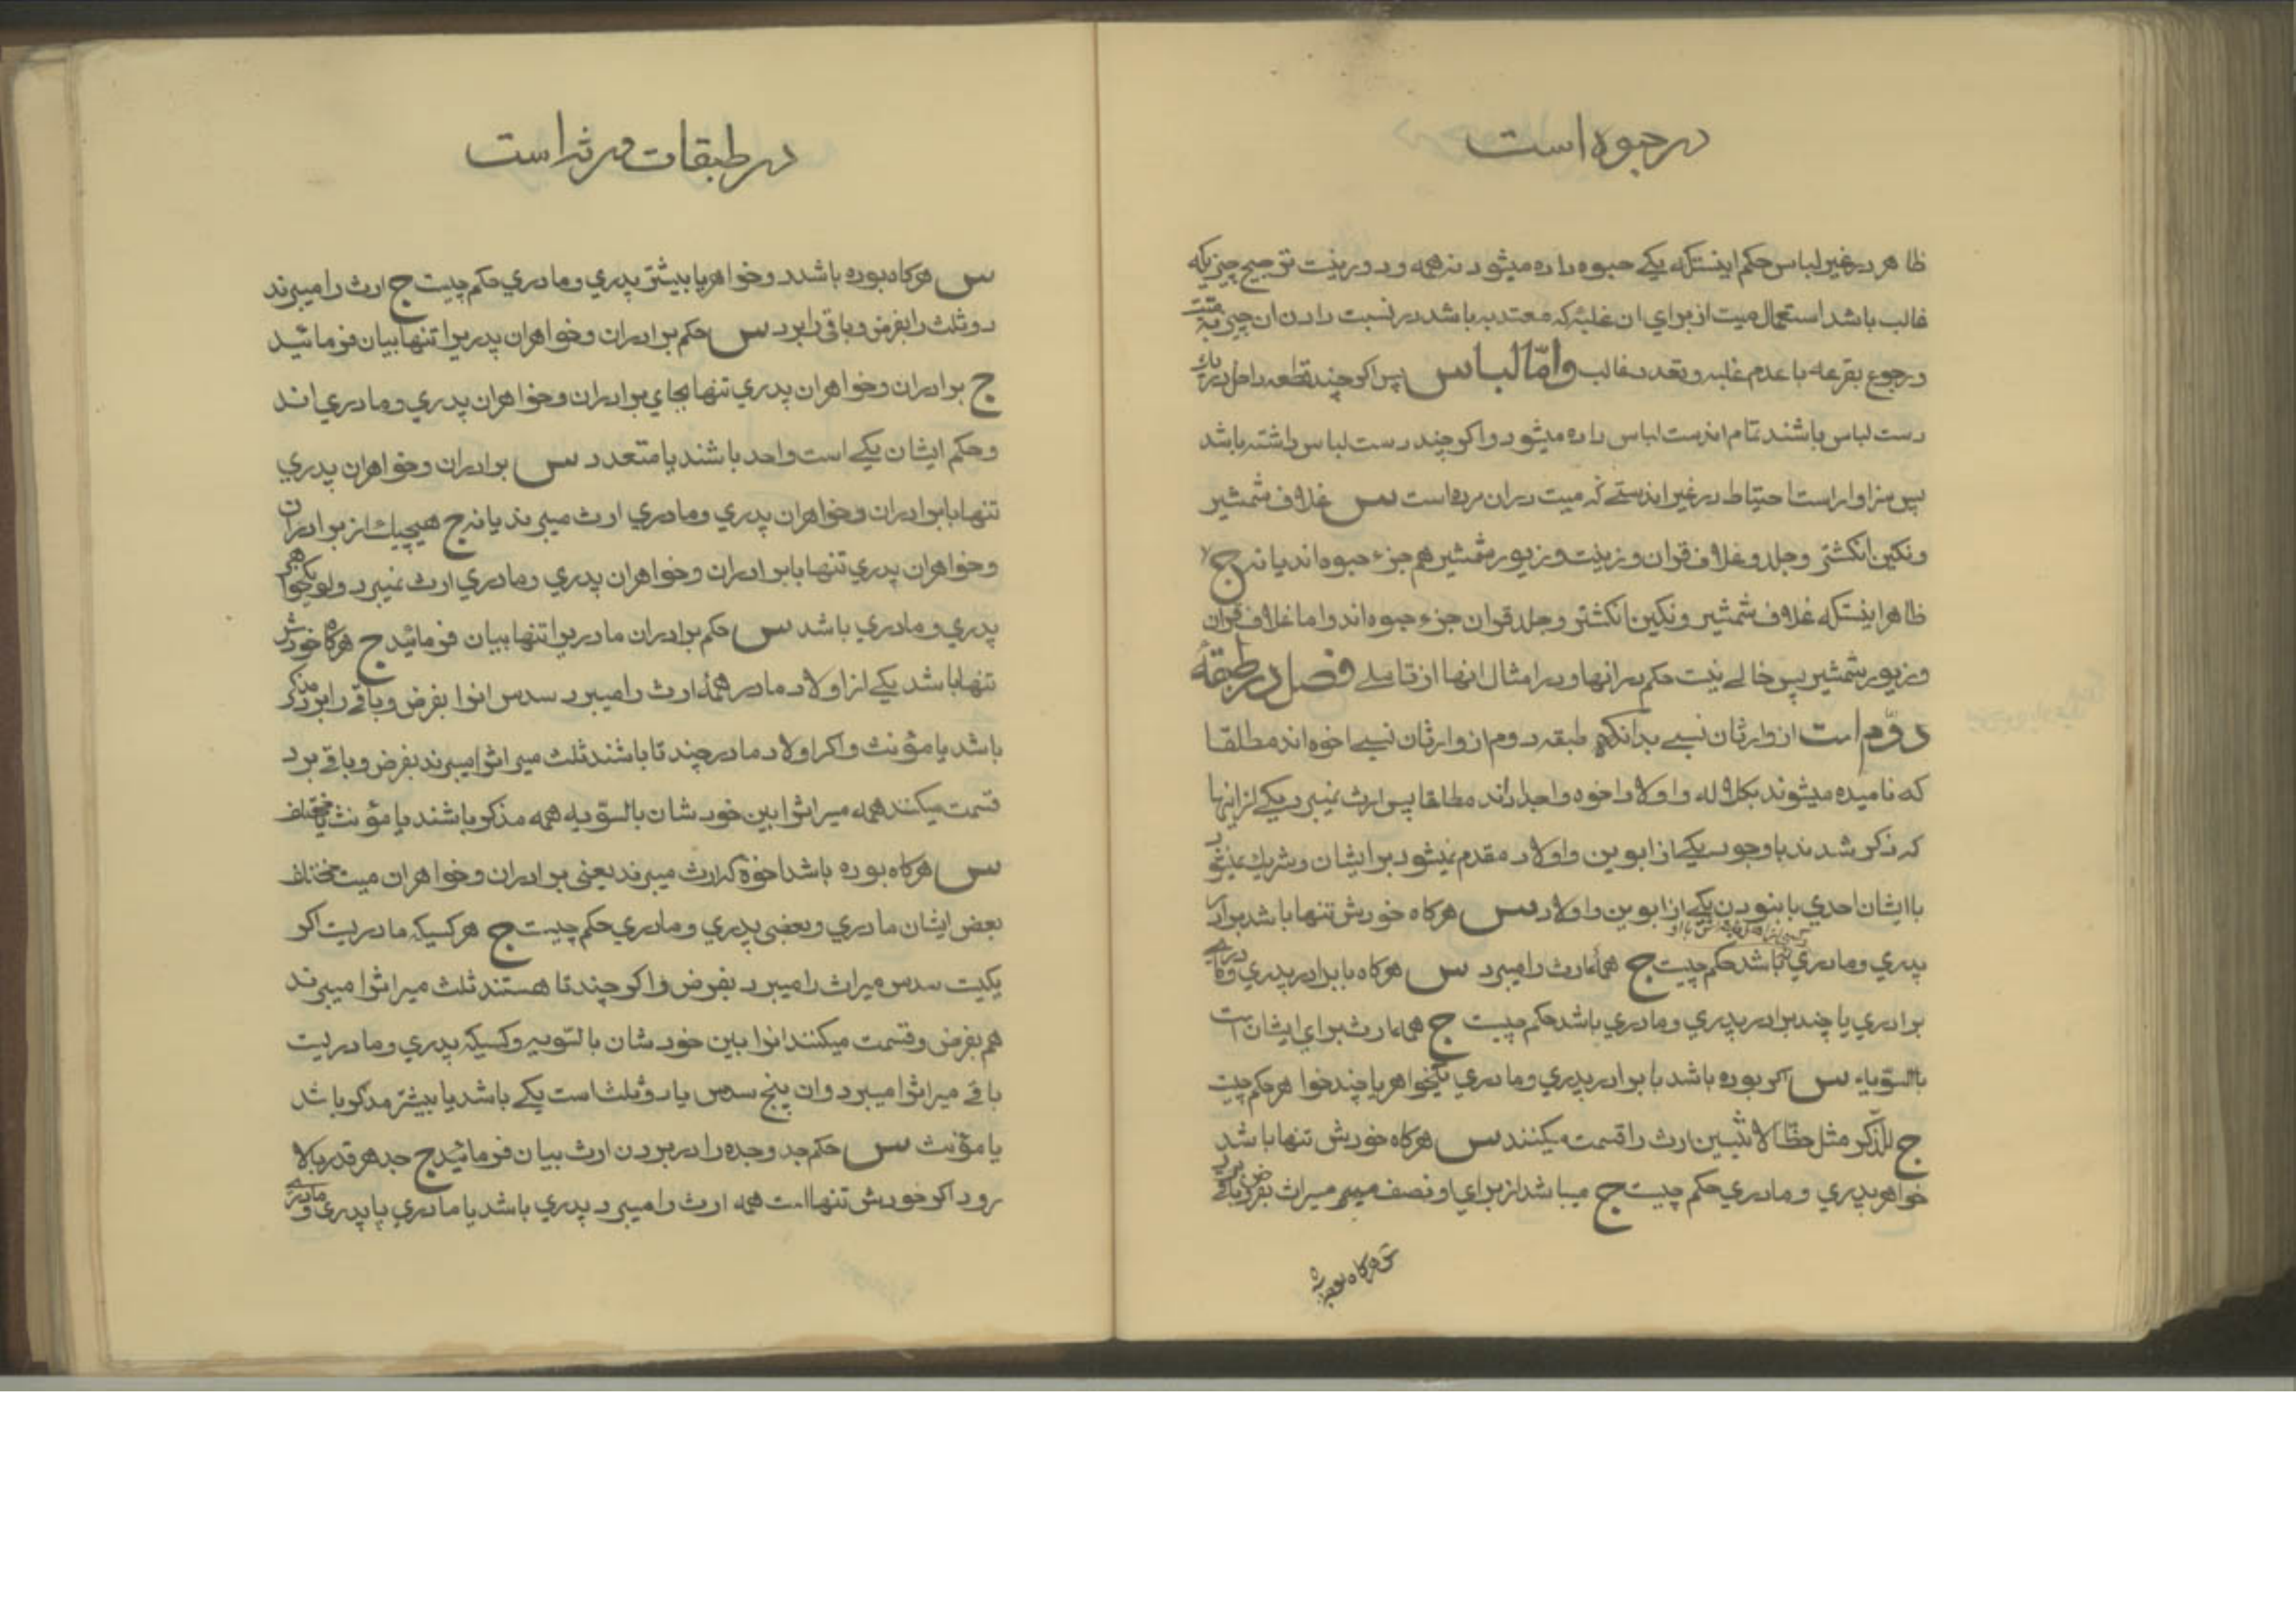 در حبوه است
ظاهر در غیر لباس حکم اینستکه یکے حبوه داده میشود نه همه و دور نیست ترجیح چیزیکه
غالب باشد استعمال میت از برای ان غلبهٔ که معتد به باشد در نسبت دادن ان چیز بمیت
و رجوع بقرعه با عدم غلبه و تعدد غالب و امّا لباس پس اکر چند قطعه داخل در یک
دست لباس باشند تمام اندست لباس داده میشود و اکر چند دست لباس داشته باشد
پس سزاوار است احتیاط در غیر اندستے که میت در ان مرده است س غلاف شمشیر
و نکین انکشتر و جلد و غلاف قران و زینت و زیور شمشیر هم جزء حبوه اند یا نه ج
ظاهر اینستکه غلاف شمشیر و نکین انکشتر و جلد قران جزء حبوه اند و اما غلاف قران
و زیور شمشیر پس خالے نیست حکم در انها و در امثال انها از تاملے فصل در طبقهٔ
دوّم است از وارثان نسبے بدانکه طبقه دوم از وارثان نسبے اخوه اند مطلقا
که نامیده میشوند بکلاله و اولاد اخوه و اجداد اند مطلقا پس ارث نمیبرد یکے از اینها
که ذکر شدند با وجود یکے از ابوین و اولاد مقدم نمیشود بر ایشان و شریک نمیشود
با ایشان احدی با نبودن یکے از ابوین و اولاد س هرکاه خودش تنها باشد برادر
پدری و مادری باشد حکم چیست ج همهٔ ارث را میبرد س هرکاه با برادر پدری و مادری
برادری یا چند برادر پدری و مادری باشد حکم چیست ج همه ارث برای ایشان است
بالسّویه س اکر بوده باشد با برادر پدری و مادری یکخواهر یا چند خواهر حکم چیست
ج للذّکر مثل حظّ الانثیین ارث را قسمت میکنند س هرکاه خودش تنها باشد
خواهر پدری و مادری حکم چیست ج میباشد از برای او نصف میراث بفرض و باقے برد
س هرکاه بوده
در طبقات ورثه است
س هرکاه بوده باشد دو خواهر یا بیشتر پدری و مادری حکم چیست ج ارث را میبرند
دو ثلث را بفرض و باقی را برد س حکم برادران و خواهران پدریرا تنها بیان فرمائید
ج برادران و خواهران پدری تنها بجای برادران و خواهران پدری و مادری اند
و حکم ایشان یکے است واحد باشند یا متعدد س برادران و خواهران پدری
تنها با برادران و خواهران پدری و مادری ارث میبرند یا نه ج هیچیک از برادران
و خواهران پدری تنها با برادران و خواهران پدری و مادری ارث نمیبرد ولو یکخواهر
پدری و مادری باشد س حکم برادران مادریرا تنها بیان فرمائید ج هرکاه خودش
تنها باشد یکے از اولاد مادر همهٔ ارث را میبرد سدس انرا بفرض و باقے را برد مذکر
باشد یا مؤنث و اکر اولاد مادر چند تا باشند ثلث میراثرا میبرند بفرض و باقے برد
قسمت میکنند همه میراثرا بین خودشان بالسّویه همه مذکر باشند یا مؤنث یا مختلف
س هرکاه بوده باشد اخوهٔ که ارث میبرند یعنی برادران و خواهران میت مختلف
بعض ایشان مادری و بعضی پدری و مادری حکم چیست ج هر کسیکه مادریست اکر
یکیست سدس میراث را میبرد بفرض و اکر چند تا هستند ثلث میراثرا میبرند
هم بفرض و قسمت میکنند انرا بین خودشان بالتّویه و کسیکه پدری و مادریست
باقے میراثرا میبرد و ان پنج سدس یا دو ثلث است یکے باشد یا بیشتر مذکر باشد
یا مؤنث س حکم جد و جده را در بردن ارث بیان فرمائید ج جد هر قدر بالا
رود اکر خودش تنها است همه ارث را میبرد پدری باشد یا مادری یا پدری و مادری